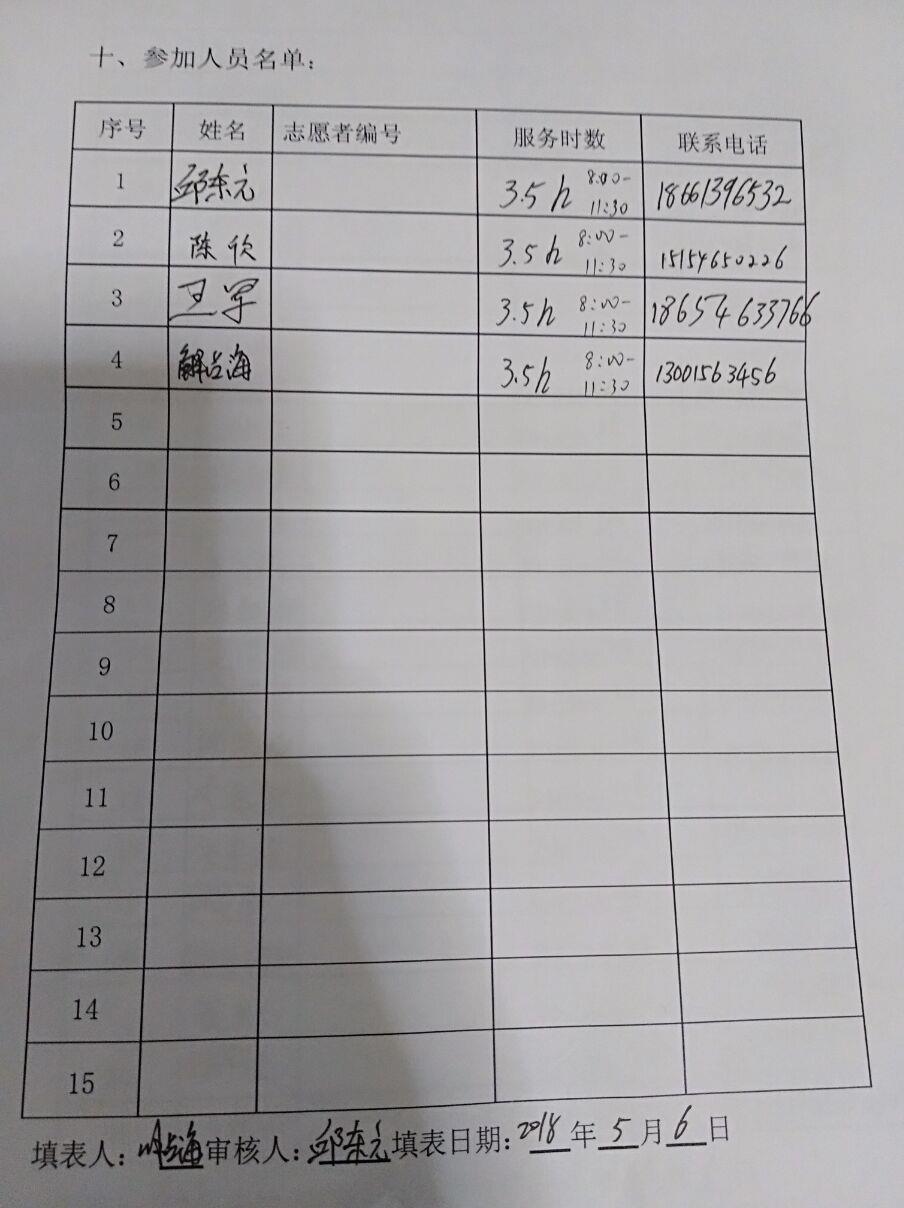 十、参加人员名单：
序号 姓名 志愿者编号 服务时数 联系电话
1 邱东元 3.5h 8:00-11:30 18661396532
2 陈欣 3.5h 8:00-11:30 15154650226
3 王军 3.5h 8:00-11:30 18654633766
4 解占海 3.5h 8:00-11:30 13001563456
5
6
7
8
9
10
11
12
13
14
15
填表人：解占海 审核人：邱东元 填表日期：2018年5月6日